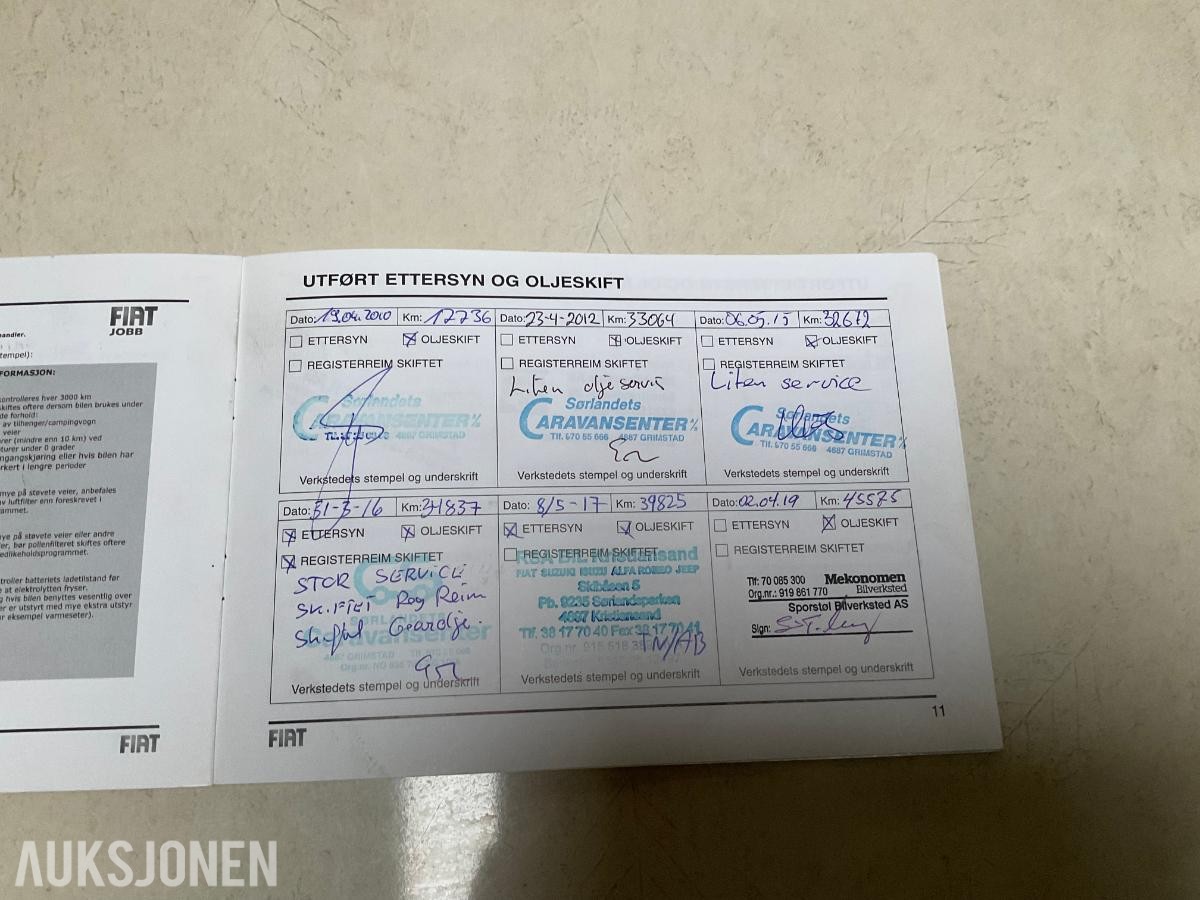 FIAT
JOBB
handler.
tempel):
FORMASJON:
kontrolleres hver 3000 km
skiftes oftere dersom bilen brukes under
de forhold:
av tilhenger/campingvogn
veier
rer (mindre enn 10 km) ved
turer under 0 grader
mgangskjøring eller hvis bilen har
arkert i lengre perioder
mye på støvete veier, anbefales
av luftfilter enn foreskrevet i
rammet.
ye på støvete veier eller andre
er, bør pollenfilteret skiftes oftere
edlikeholdsprogrammet.
troller batteriets ladetilstand før
e at elektrolytten fryser.
g hvis bilen benyttes vesentlig over
er er utstyrt med mye ekstra utstyr
r eksempel varmeseter).
FIAT
UTFØRT ETTERSYN OG OLJESKIFT
Dato: 19.04.2010 Km: 12736
ETTERSYN OLJESKIFT
REGISTERREIM SKIFTET
Sørlandets
CARAVANSENTER
4887 GRIMSTAD
Verkstedets stempel og underskrift
Dato: 23-4-2012 Km: 33064
ETTERSYN OLJESKIFT
REGISTERREIM SKIFTET
Liten olje servis
Sørlandets
CARAVANSENTER A/S
Tlf. 370 55 666 4887 GRIMSTAD
Verkstedets stempel og underskrift
Dato: 06.05.15 Km: 32612
ETTERSYN OLJESKIFT
REGISTERREIM SKIFTET
Liten service
Sørlandets
CARAVANSENTER A/S
Tlf. 370 55 666 4887 GRIMSTAD
Verkstedets stempel og underskrift
Dato: 31-3-16 Km: 34837
ETTERSYN OLJESKIFT
REGISTERREIM SKIFTET
STOR SERVICE
SKIFTET Reg Reim
Skiftet Gearolje.
SØRLANDETS
Caravansenter
4887 GRIMSTAD
Verkstedets stempel og underskrift
Dato: 8/5-17 Km: 39825
ETTERSYN OLJESKIFT
REGISTERREIM SKIFTET
RBA BIL Kristiansand
FIAT SUZUKI ISUZU ALFA ROMEO JEEP
Skibåsen 5
Pb. 8235 Sørlandsparken
4687 Kristiansand
Tlf. 38 17 70 40 Fax 38 17 70 41
TN/AB
Verkstedets stempel og underskrift
Dato: 02.04.19 Km: 45575
ETTERSYN OLJESKIFT
REGISTERREIM SKIFTET
Tlf: 70 085 300 Mekonomen
Org.nr.: 919 861 770 Bilverksted
Sporstøl Bilverksted AS
Sign:
Verkstedets stempel og underskrift
11
FIAT
AUKSJONEN